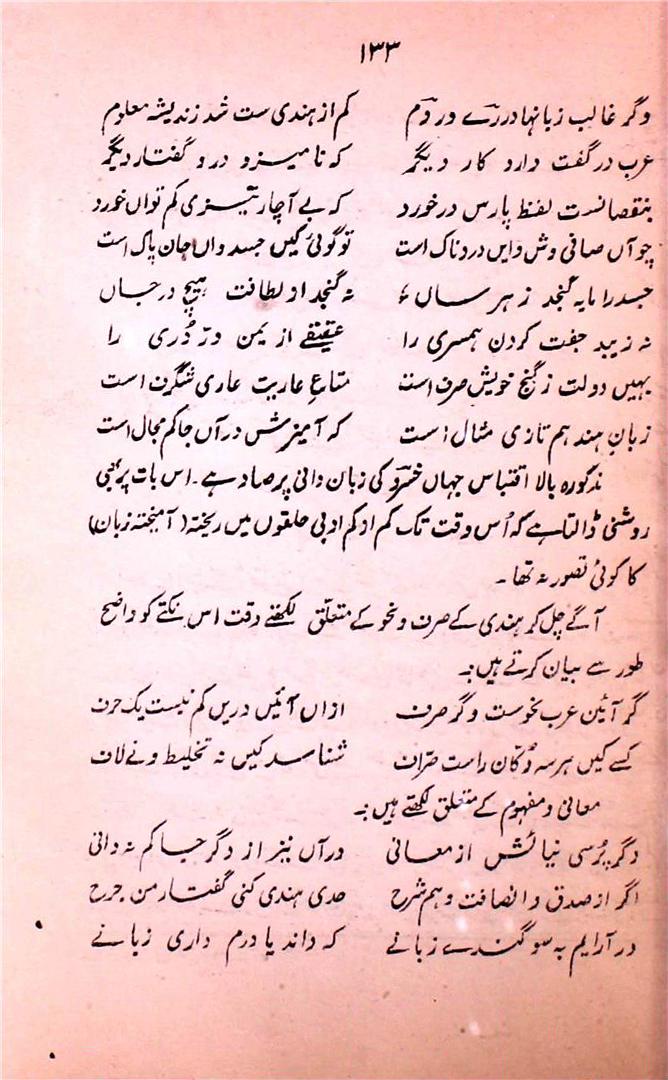 ۱۳۳
وگر غالب زبانہا در رے و روم کم از ہندی ست شد ز ندیشہ معلوم
عرب در گفت دارد کار دیگر کہ نامیزد درو گفتار دیگر
بنقصانست لفظ پارس در خورد کہ بے آچار تیزی کم تواں خورد
چو آں صافی وش وایں دردناک است تو گوئی کیں جسد واں جان پاک است
جسد را مایہ گنجد ز ہر ساں ء نہ گنجد از لطافت ہیچ در جاں
نہ زیبد جفت کردن ہمسری را عقیقے از یمن درّ دُری را
بہیں دولت ز گنج خویش صرف است متاعِ عاریت عاری شگرف است
زبانِ ہند ہم تازی مثال است کہ آمیزش در آں جا کم مجال است
مذکورہ بالا اقتباس جہاں خسرو کی زبان دانی پر صاد ہے ۔ اس بات پر بھی
روشنی ڈالتا ہے کہ اُس وقت تک کم از کم ادبی حلقوں میں ریختہ (آمیختہ زبان)
کا کوئی تصور نہ تھا ۔
آگے چل کر ہندی کے صرف و نحو کے متعلّق لکھتے وقت اس نکتے کو واضح
طور سے بیان کرتے ہیں :۔
گر آئین عرب نحوست و گر صرف ازاں آئیں دریں کم نیست یک حرف
کسے کیں ہر سہ دُکان راست صرّاف شناسد کیں نہ تخلیط و نے لاف
معانی و مفہوم کے متعلق لکھتے ہیں :۔
دگر پُرسی نیائش از معانی در آں نیز از دگرجا کم نہ دانی
اگر از صدق و انصافت دہم شرح حدی ہندی کنی گفتار من جرح
در آرایم بہ سوگندے زبانے کہ داند یا درم داری زبانے